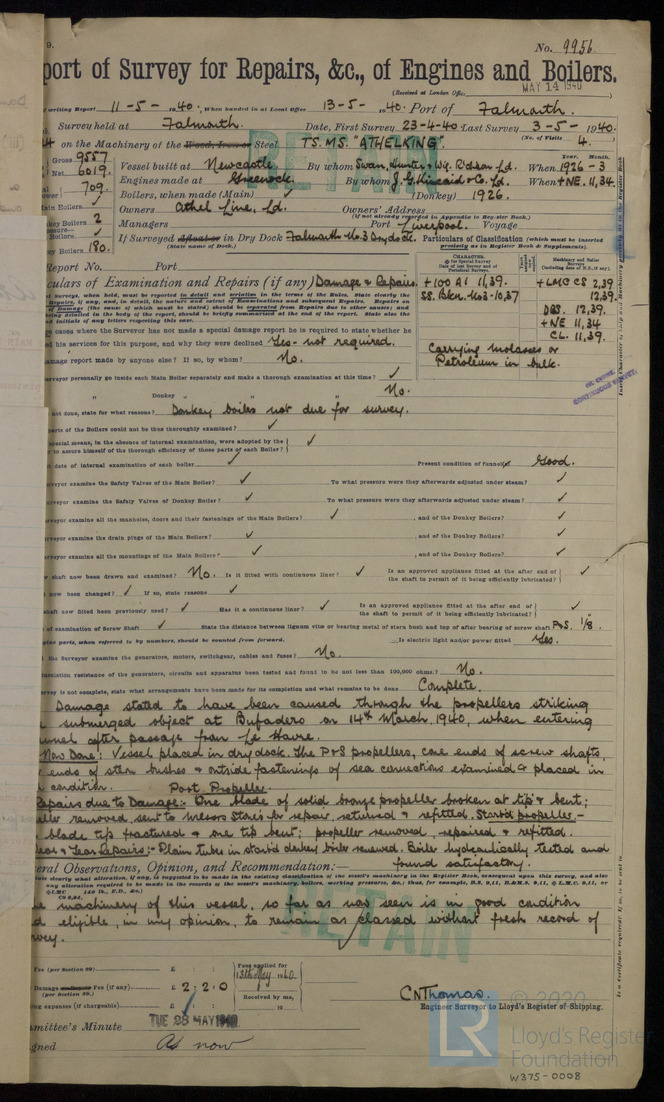 9.
No. 9956
port of Survey for Repairs, &c., of Engines and Boilers.
(Received at London Office MAY 14 1940
writing Report 11-5-1940, When handed in at Local Office 13-5-1940. Port of Falmouth.
Survey held at Falmouth. Date, First Survey 23-4-40 Last Survey 3-5-1940.
(No. of Visits 4.
on the Machinery of the Wood, Iron or Steel T.S.M.S. "ATHELKING".
Gross 9557
Net 6019.
Vessel built at Newcastle. By whom Swan, Hunter & Wg. R'dson Ld. When 1926-3
Year. Month.
709.
Engines made at Greenock. By whom J. G. Kincaid & Co. Ld. When +NE. 11,34.
Boilers, when made (Main) ✓ (Donkey) 1926.
Main Boilers ✓
Owners Athel Line, Ld. Owners' Address
(if not already recorded in Appendix to Register Book.)
key Boilers 2
Managers Port Liverpool. Voyage
Boilers ✓
If Surveyed Afloat or in Dry Dock Falmouth No.3 Dry dock.
(State name of Dock.)
Boilers 180.
Particulars of Classification (which must be inserted precisely as in Register Book & Supplements).
Report No. Port
CHARACTER.
+100 A1 11,39.
SS. Bkn. No3-10,37
+LMC CS 2,39
12,39.
DBS. 12,39.
+NE 11,34
CL. 11,39.
Carrying molasses or
Petroleum in bulk.
culars of Examination and Repairs (if any) Damage & Repairs.
cases where the Surveyor has not made a special damage report he is required to state whether he
his services for this purpose, and why they were declined Yes - not required.
amage report made by anyone else? If so, by whom? No.
urveyor personally go inside each Main Boiler separately and make a thorough examination at this time? ✓
" Donkey " " " " No.
not done, state for what reasons? Donkey boiler not due for survey.
parts of the Boilers could not be thus thoroughly examined? ✓
special means, in the absence of internal examination, were adopted by the
to assure himself of the thorough efficiency of those parts of each Boiler? ✓
date of internal examination of each boiler ✓ Present condition of funnel Good.
urveyor examine the Safety Valves of the Main Boiler? ✓ To what pressure were they afterwards adjusted under steam? ✓
urveyor examine the Safety Valves of Donkey Boiler? ✓ To what pressure were they afterwards adjusted under steam? ✓
rveyor examine all the manholes, doors and their fastenings of the Main Boilers? ✓ , and of the Donkey Boilers? ✓
rveyor examine the drain plugs of the Main Boilers? ✓ , and of the Donkey Boilers? ✓
rveyor examine all the mountings of the Main Boilers? ✓ , and of the Donkey Boilers? ✓
shaft now been drawn and examined? No. Is it fitted with continuous liner? ✓ Is an approved appliance fitted at the after end of
the shaft to permit of it being efficiently lubricated? ✓
now been changed? ✓ If so, state reasons ✓
shaft now fitted been previously used? ✓ Has it a continuous liner? ✓ Is an approved appliance fitted at the after end of
the shaft to permit of it being efficiently lubricated? ✓
of examination of Screw Shaft ✓ State the distance between lignum vitæ or bearing metal of stern bush and top of after bearing of screw shaft P&S. 1/8"
gine parts, when referred to by numbers, should be counted from forward. Is electric light and/or power fitted Yes.
the Surveyor examine the generators, motors, switchgear, cables and fuses? No.
nsulation resistance of the generators, circuits and apparatus been tested and found to be not less than 100,000 ohms? No.
urvey is not complete, state what arrangements have been made for its completion and what remains to be done Complete.
Damage stated to have been caused through the propellers striking
submerged object at Bufadero on 14th March, 1940, when entering
nnel after passage from Le Havre.
Now Done: Vessel placed in dry dock. The P&S propellers, cone ends of screw shafts,
ends of stern bushes & outside fastenings of sea connections examined & placed in
condition. Port Propeller.
Repairs due to Damage:- One blade of solid bronze propeller broken at tip & bent;
eller removed sent to Messrs Stones for repair, returned & refitted. Starbd propeller,-
blade tip fractured & one tip bent; propeller removed, repaired & refitted.
ear & Tear Repairs:- Plain tubes in starbd donkey boiler renewed. Boiler hydraulically tested and
found satisfactory.
eral Observations, Opinion, and Recommendation:—
e machinery of this vessel, so far as now seen is in good condition
d eligible, in my opinion, to remain as classed without fresh record of
rvey.
RETAIN
Fee (per Section 29) £ : :
Damage Fee (if any) £ 2:2:0
(per Section 29.)
ng expenses (if chargeable) £ : :
Fees applied for
13th May 1940
Received by me,
CNThomas.
Engineer Surveyor to Lloyd's Register of Shipping.
mmittee's Minute TUE 28 MAY 1940
gned As now
© 2020
LR
Lloyd's Register
Foundation
W375-0008